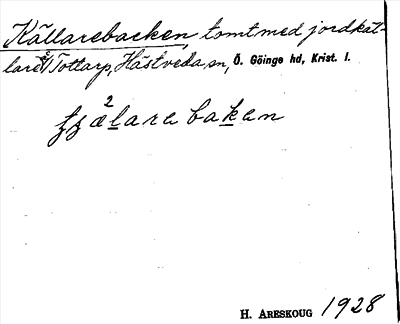 Källarebacken, tomt med jordkäl-
lare i Tottarp, Hästveda sn, Ö. Göinge hd, Krist. l.
2
ʈʂælara bakan
H. ARESKOUG 1928